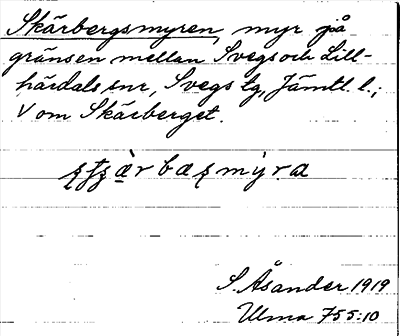 Skärbergsmyren, myr på
gränsen mellan Svegs och Lill-
härdals snr, Svegs tg, Jämtl. l.;
V om Skärberget.
S. Åsander 1919
Ulma 755:10